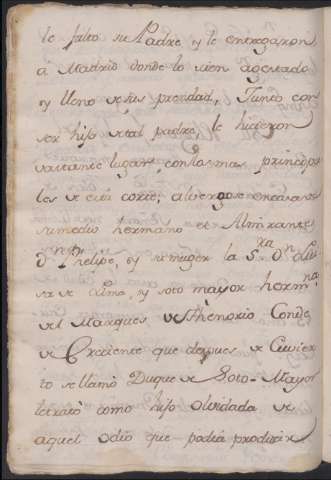 le falto su Padre, y le entregaron
a Madrid donde lo vien agestado
y lleno de sus prendas, Junto con
ser hijo de tal padre, le hicieron
vastante lugar, con los mas principa
les de esta corte, alvergose en casa de
su medio hermano el Almirante
Dn Phelipe, y su muger la S.ra Dn Lui
sa de Alma, y soto mayor herm.na
del Marques de Thenorio Conde
de Creciente que despues de Cuvier
to se llamò Duque de Soto-Mayor
tetratò como hijo olvidada de
aquel odio que podia producir